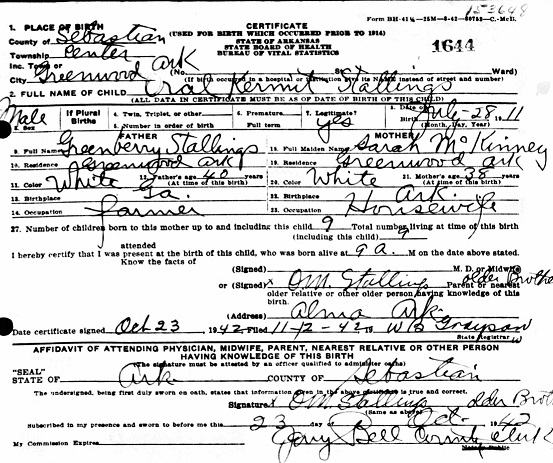 153648
Form BH-41½—25M—8-42—80753—C.-McD.
1. PLACE OF BIRTH
CERTIFICATE
County of Sebastian
(USED FOR BIRTH WHICH OCCURRED PRIOR TO 1914)
STATE OF ARKANSAS
Township Center
STATE BOARD OF HEALTH
BUREAU OF VITAL STATISTICS
1644
Inc. Town or Ark
City Greenwood (No. St. Ward)
(If birth occurred in a hospital or institution give its NAME instead of street and number)
2. FULL NAME OF CHILD Oral Kermit Stallings
(ALL DATA IN CERTIFICATE MUST BE AS OF DATE OF BIRTH OF THIS CHILD)
Male
3. Sex
If Plural Births
4. Twin, Triplet, or other
5. Number in order of birth
6. Premature
Full term
7. Legitimate?
Yes
8. Date of Birth July-28 1911
(Month, Day, Year)
FATHER
MOTHER
9. Full Name Greenberry Stallings
18. Full Maiden Name Sarah McKinney
10. Residence Greenwood Ark
19. Residence Greenwood Ark
11. Color White
12. Father's age 40 years
(At time of this birth)
20. Color White
21. Mother's age 38 years
(At time of this birth)
13. Birthplace Ga.
22. Birthplace Ark.
14. Occupation farmer
23. Occupation Housewife
27. Number of children born to this mother up to and including this child 9 Total number living at time of this birth
(including this child) 9
attended
I hereby certify that I was present at the birth of this child, who was born alive at 9 a. M on the date above stated.
Know the facts of
(Signed) M. D. or Midwife
or (Signed) x OM. Stallings older Brother Parent or nearest
older relative or other older person having knowledge of this
birth.
(Address) Alma Ark.
Date certificate signed Oct 23, 1942 Filed 11-12-42 19 W B Grayson
State Registrar
AFFIDAVIT OF ATTENDING PHYSICIAN, MIDWIFE, PARENT, NEAREST RELATIVE OR OTHER PERSON
HAVING KNOWLEDGE OF THIS BIRTH
(The signature must be attested by an officer qualified to administer oaths)
"SEAL"
STATE OF Ark COUNTY OF Sebastian
The undersigned, being first duly sworn on oath, states that information given in the above certificate is true and correct.
Signature x OM. Stallings older Brother
(Same as above)
Subscribed in my presence and sworn to before me this 23 day of Oct. 1942
My Commission Expires Jerry Bell County Clerk
Notary Public